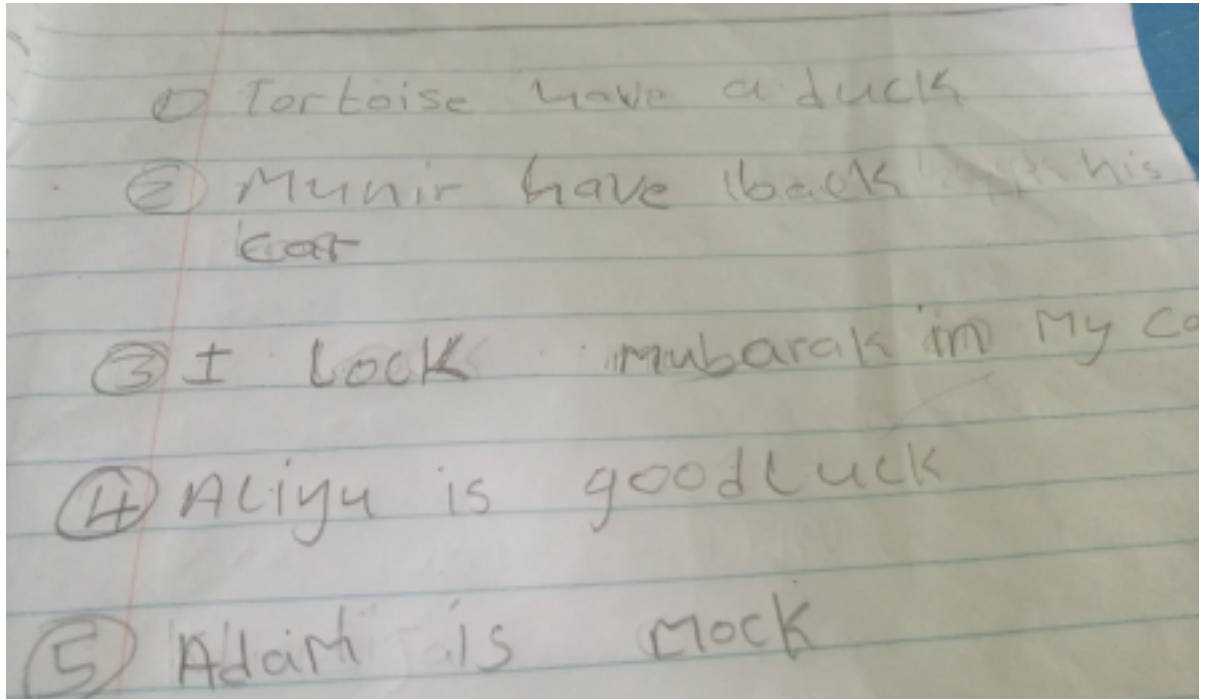 ① Tortoise have a duck
② Munir have back his
car
③ I Lock mubarak in My
④ Aliyu is goodluck
⑤ Adam is mock